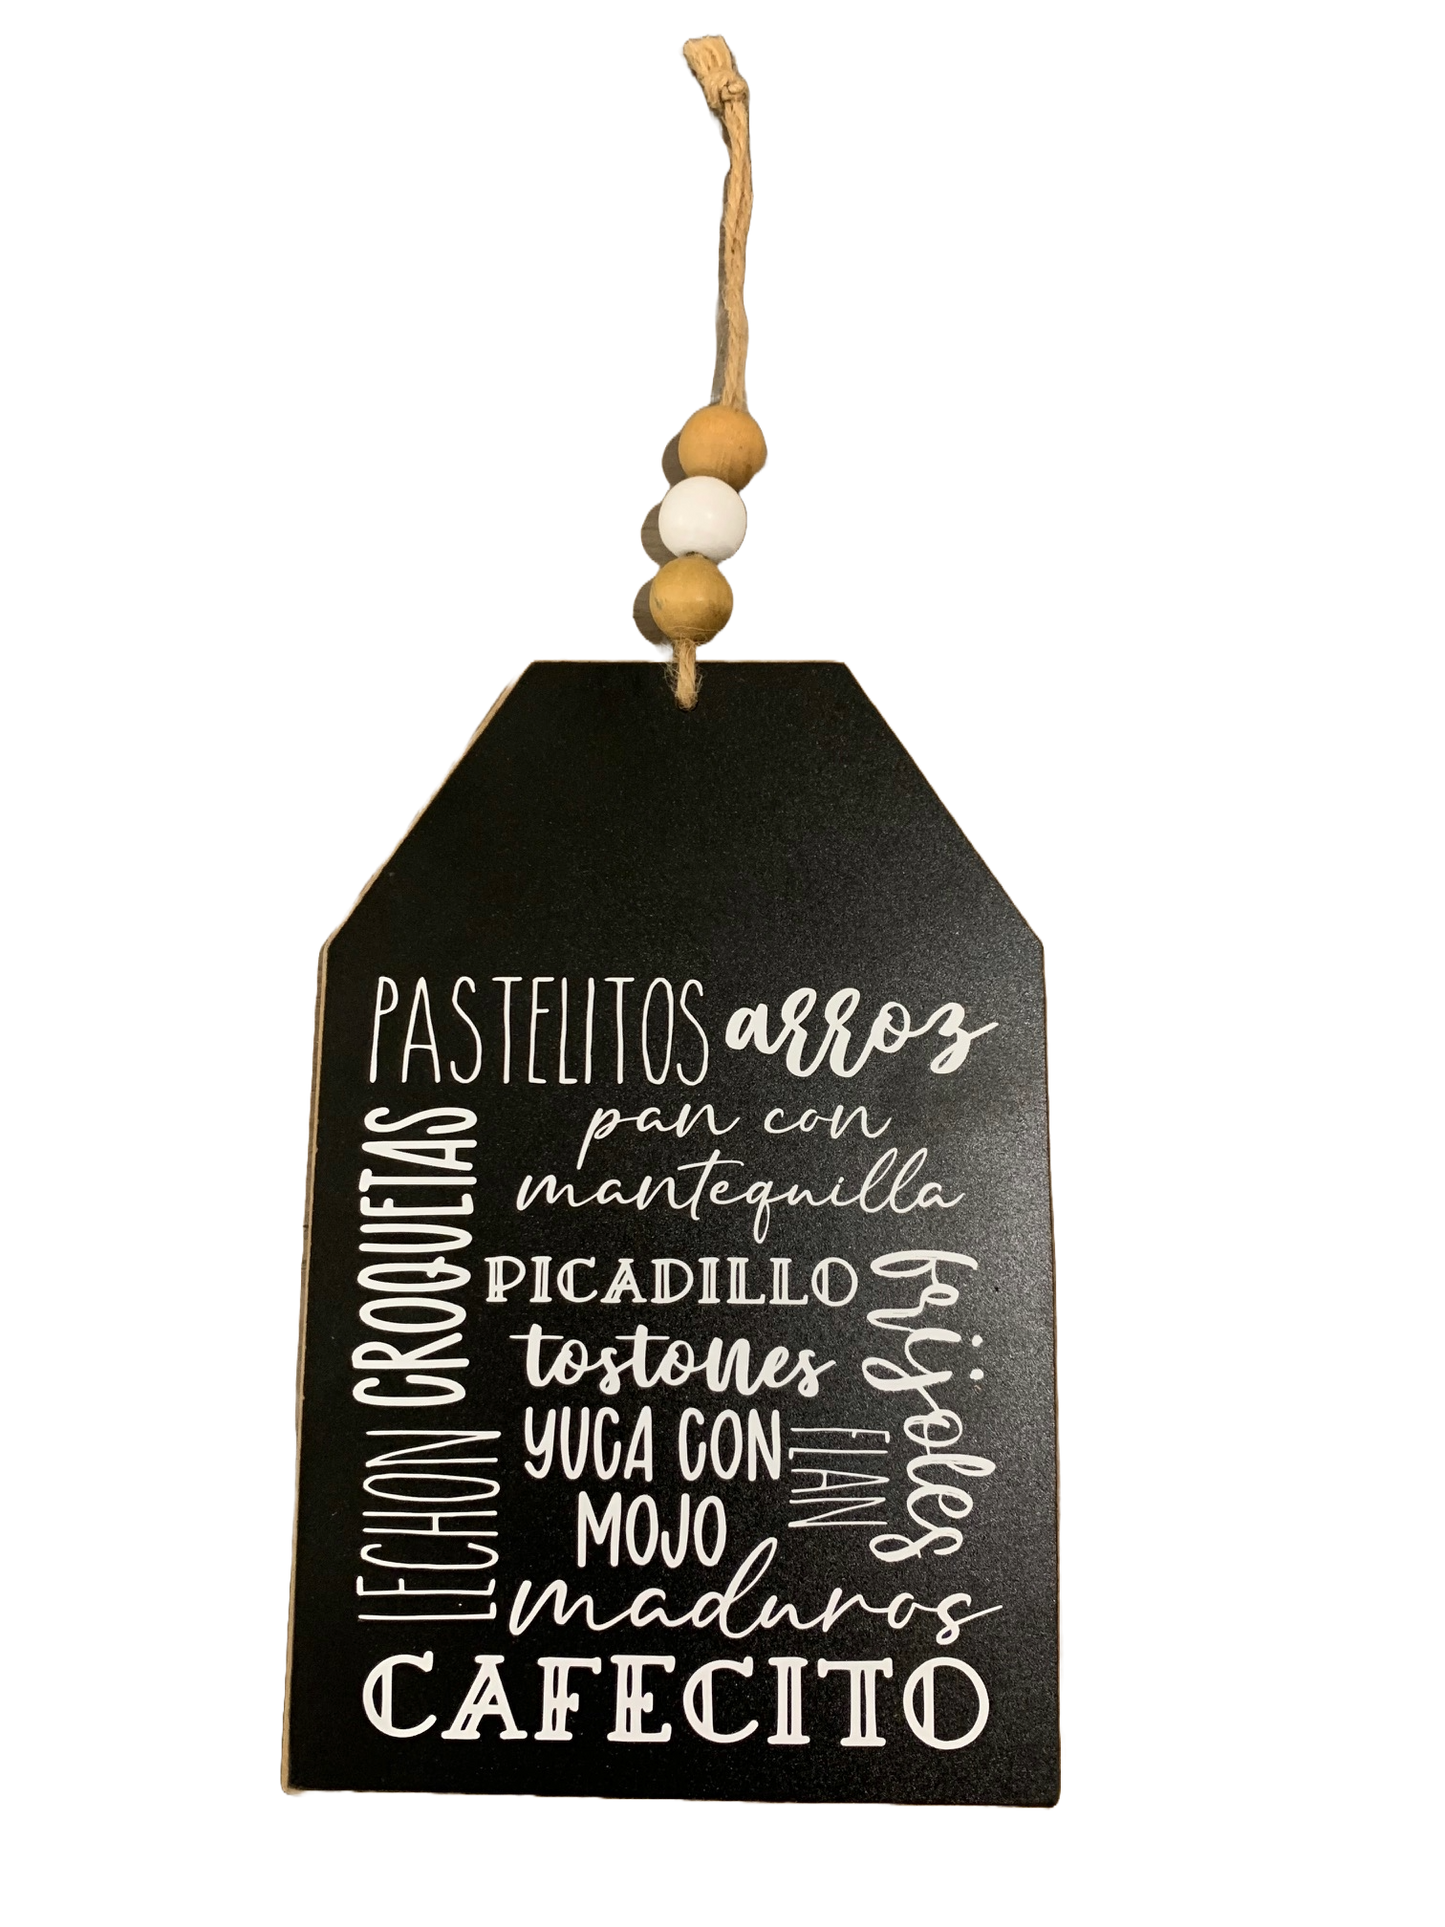 PASTELITOS arroz
pan con
mantequilla
CROQUETAS
PICADILLO
frijoles
tostones
YUCA CON
MOJO
FLAN
LECHON
maduros
CAFECITO